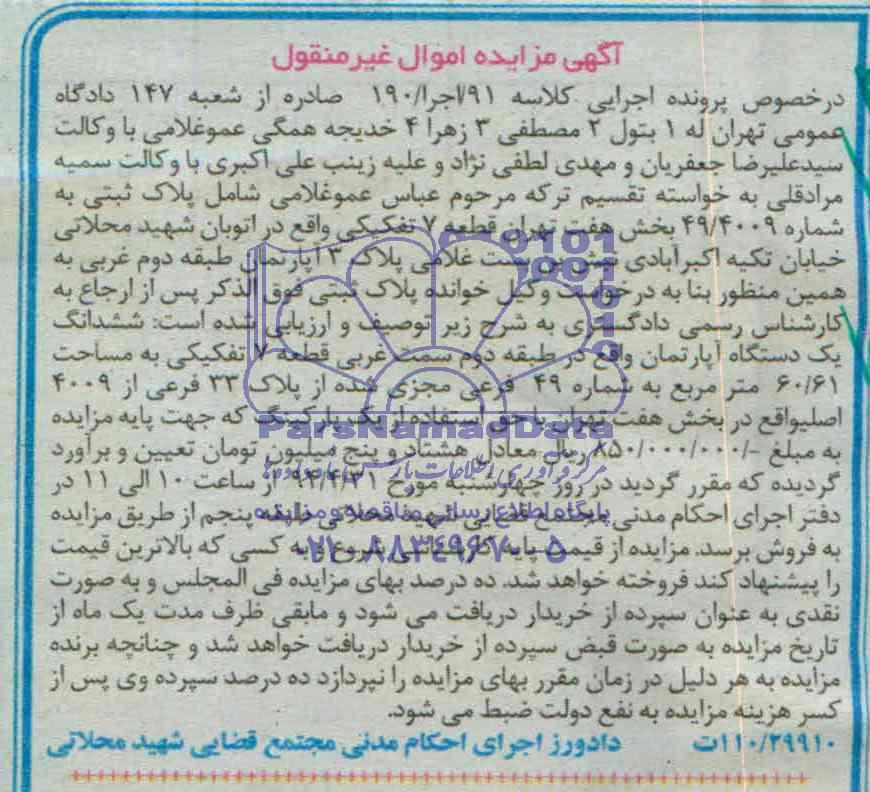 آگهی مزایده اموال غیرمنقول
درخصوص پرونده اجرایی کلاسه ۹۱/اجرا/۱۹۰ صادره از شعبه ۱۴۷ دادگاه
عمومی تهران له ۱ بتول ۲ مصطفی ۳ زهرا ۴ خدیجه همگی عموغلامی با وکالت
سیدعلیرضا جعفریان و مهدی لطفی نژاد و علیه زینب علی اکبری با وکالت سمیه
مرادقلی به خواسته تقسیم ترکه مرحوم عباس عموغلامی شامل پلاک ثبتی به
شماره ۴۹/۴۰۰۹ بخش هفت تهران قطعه ۷ تفکیکی واقع در اتوبان شهید محلاتی
خیابان تکیه اکبرآبادی نبش بن بست غلامی پلاک ۳ آپارتمان طبقه دوم غربی به
همین منظور بنا به درخواست وکیل خوانده پلاک ثبتی فوق الذکر پس از ارجاع به
کارشناس رسمی دادگستری به شرح زیر توصیف و ارزیابی شده است: ششدانگ
یک دستگاه آپارتمان واقع در طبقه دوم سمت غربی قطعه ۷ تفکیکی به مساحت
۶۰/۶۱ متر مربع به شماره ۴۹ فرعی مجزی شده از پلاک ۳۳ فرعی از ۴۰۰۹
اصلیواقع در بخش هفت تهران با حق استفاده از یک پارکینگ که جهت پایه مزایده
به مبلغ -/۸۵۰/۰۰۰/۰۰۰ ریال معادل هشتاد و پنج میلیون تومان تعیین و برآورد
گردیده که مقرر گردید در روز چهارشنبه مورخ ۹۲/۴/۳۱ از ساعت ۱۰ الی ۱۱ در
دفتر اجرای احکام مدنی مجتمع قضایی شهید محلاتی طبقه پنجم از طریق مزایده
به فروش برسد. مزایده از قیمت پایه کارشناسی شروع و به کسی که بالاترین قیمت
را پیشنهاد کند فروخته خواهد شد. ده درصد بهای مزایده فی المجلس و به صورت
نقدی به عنوان سپرده از خریدار دریافت می شود و مابقی ظرف مدت یک ماه از
تاریخ مزایده به صورت قبض سپرده از خریدار دریافت خواهد شد و چنانچه برنده
مزایده به هر دلیل در زمان مقرر بهای مزایده را نپردازد ده درصد سپرده وی پس از
کسر هزینه مزایده به نفع دولت ضبط می شود.
۱۱۰/۲۹۹۱۰ت دادورز اجرای احکام مدنی مجتمع قضایی شهید محلاتی
ParsNamadData
مرکز فرآوری اطلاعات پارس نماد داده ها
پایگاه اطلاع رسانی مناقصه و مزایده
۰۲۱-۸۸۳۴۹۶۷۰-۵